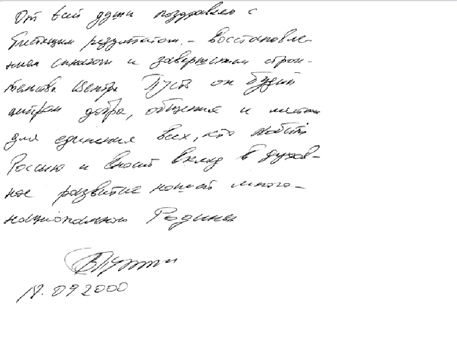 От всей души поздравляю с
блестящим результатом – восстановле-
нием синагоги и завершением строи-
тельства Центра Пусть он будет
центром добра, общения и места
для единения всех, кто любит
Россию и вносит вклад в духов-
ное развитие нашей много-
национальной Родины
В Путин
18.09 2000